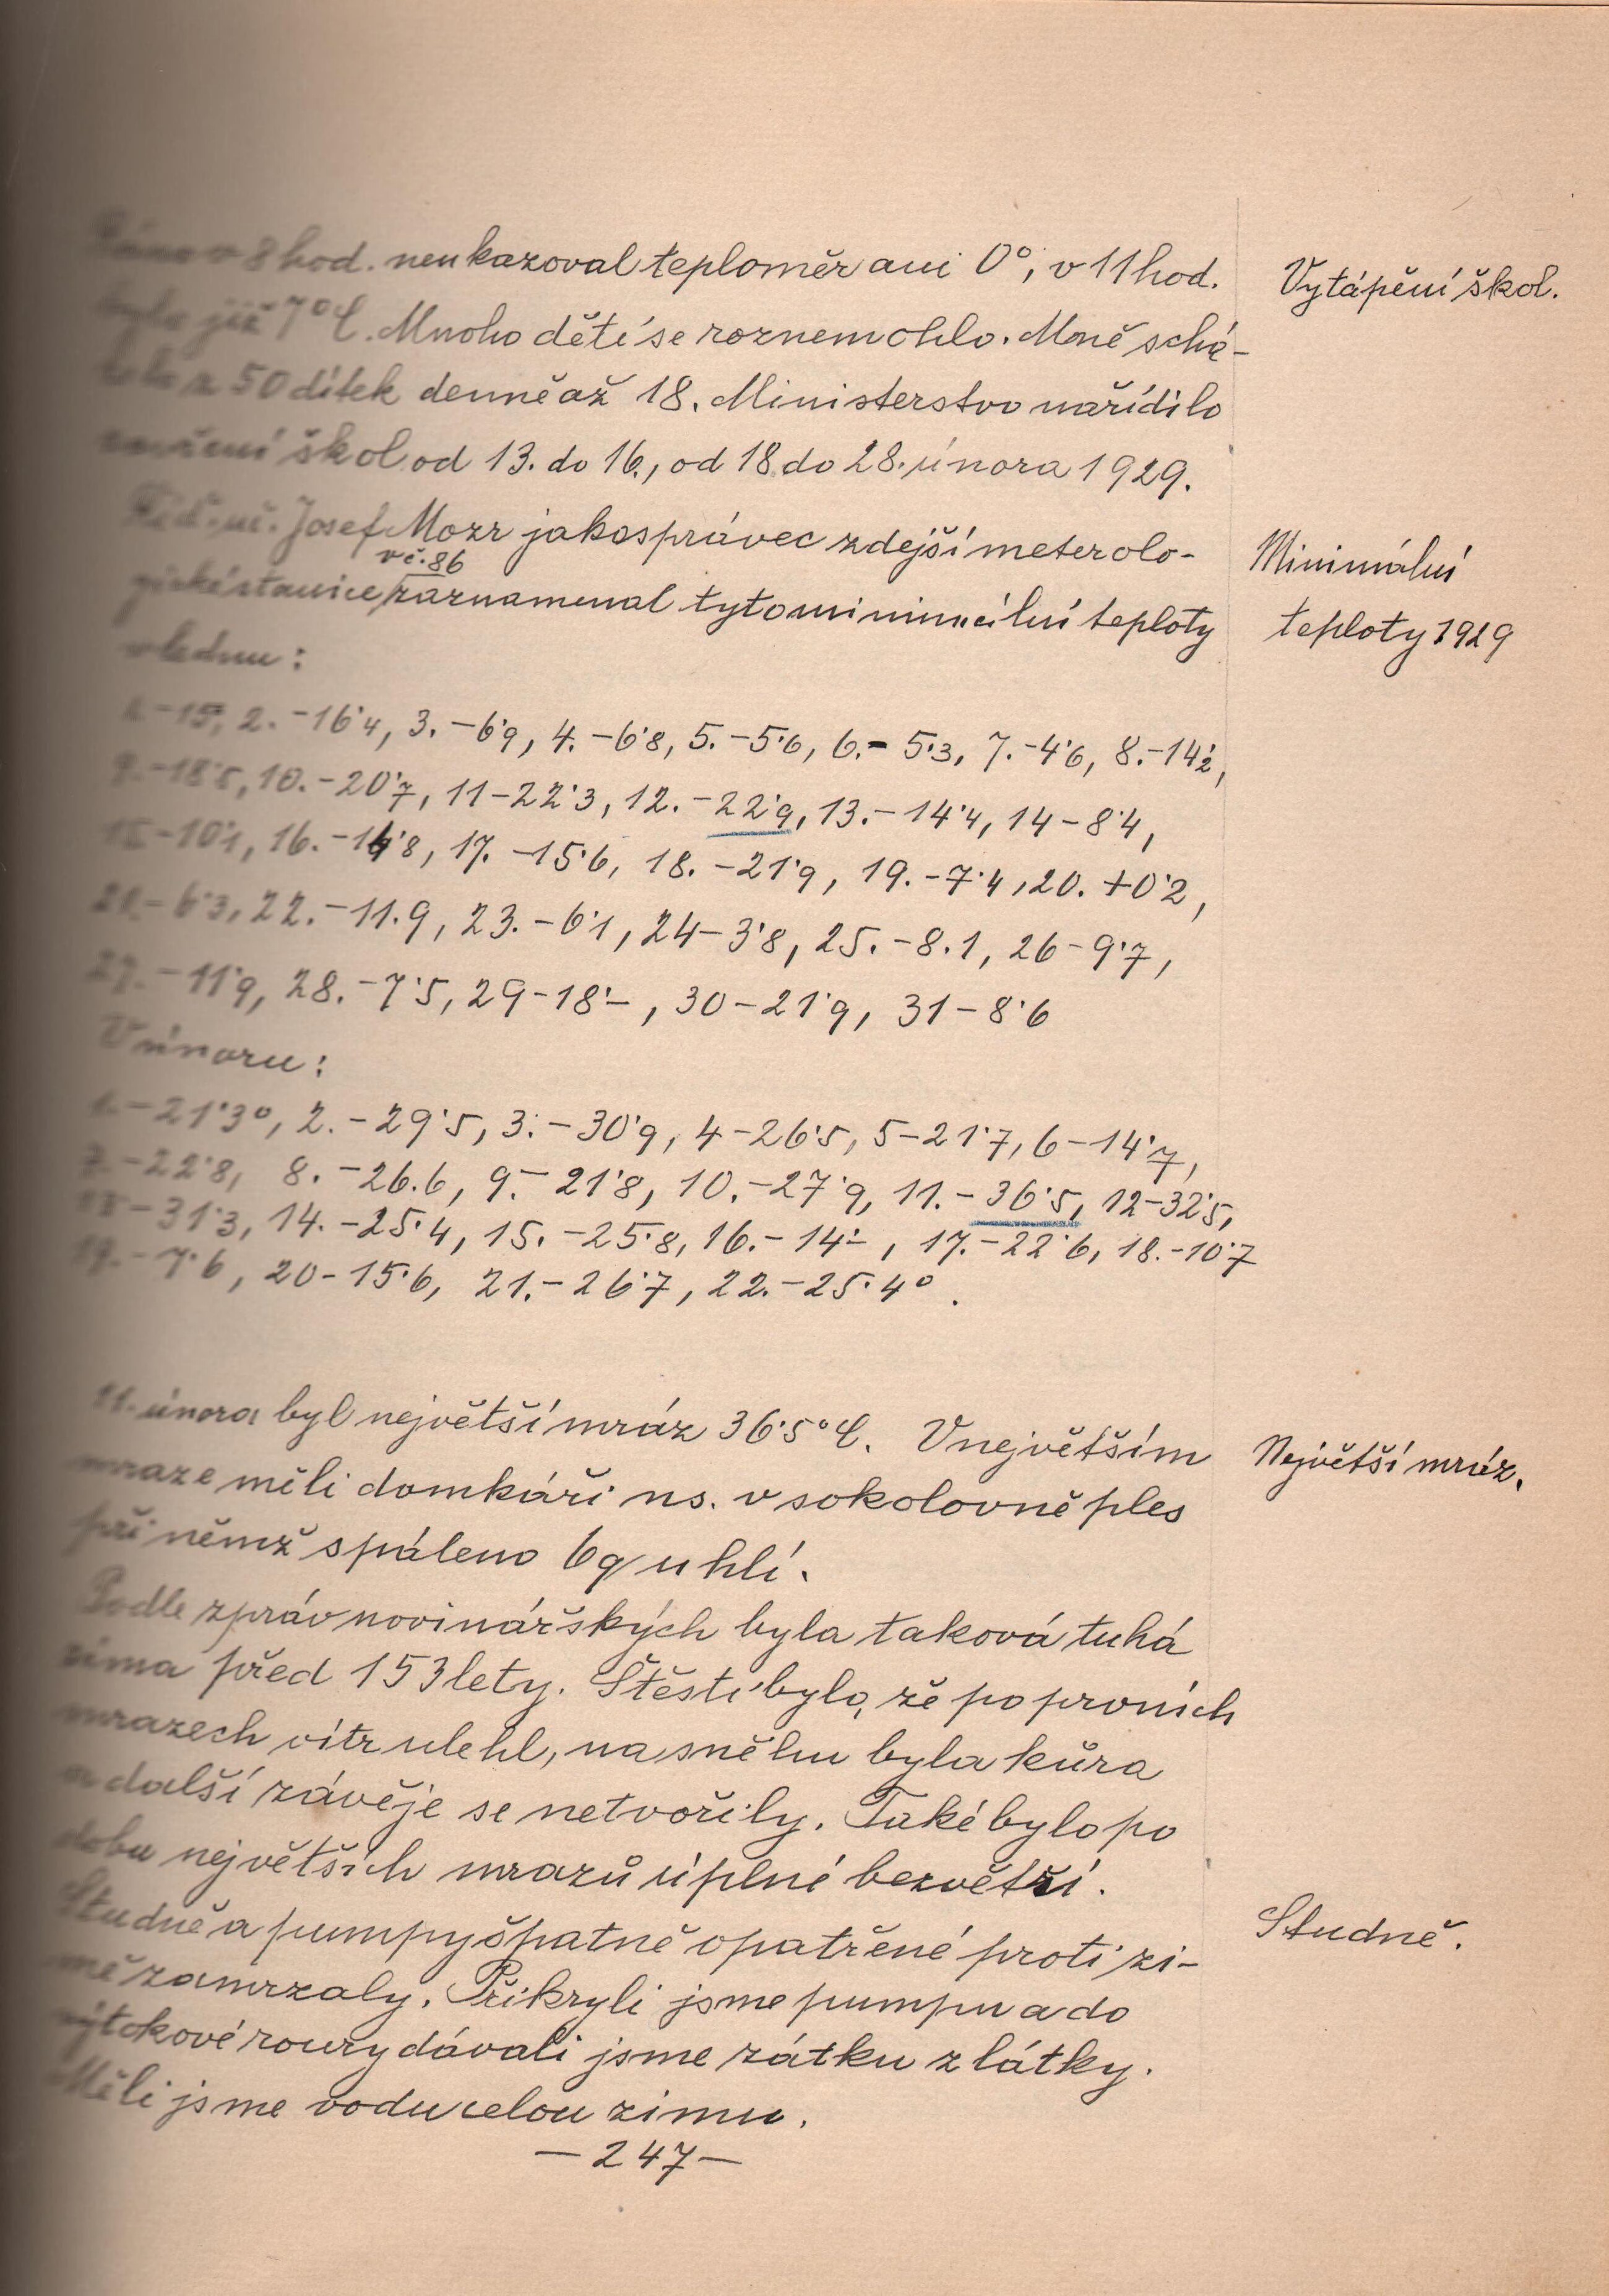 Ráno v 8 hod. neukazoval teploměr ani 0°, v 11 hod.
Vytápění škol.
bylo již 7°C. Mnoho dětí se roznemohlo. Mně schá-
zelo z 50 dítek denně až 18. Ministerstvo nařídilo
zavření škol od 13. do 16., od 18 do 28. února 1929.
Říd. uč. Josef Mozr jako správec zdejší meterolo-
Minimální
v č. 86
gické stanice zaznamenal tyto minimální teploty
teploty 1929
v lednu:
1.-15, 2. -16·4, 3. -6·9, 4. -6·8, 5. -5·6, 6. - 5·3, 7. -4·6, 8. -14·2,
9. -18·5, 10. -20·7, 11 -22·3, 12. -22·9, 13. -14·4, 14 -8·4,
15 -10·1, 16. -14·8, 17. -15·6, 18. -21·9, 19. -7·4, 20. +0·2,
21. -6·3, 22. -11.9, 23. -6·1, 24 -3·8, 25. -8.1, 26 -9·7,
27. -11·9, 28. -7·5, 29 -18·-, 30 -21·9, 31 -8·6
V únoru:
1. -21·3°, 2. -29·5, 3. -30·9, 4 -26·5, 5 -21·7, 6 -14·7,
7. -22·8, 8. -26.6, 9. -21·8, 10. -27·9, 11. -36·5, 12 -32·5,
13 -31·3, 14. -25·4, 15. -25·8, 16. -14·-, 17. -22·6, 18. -10·7
19. -7·6, 20 -15·6, 21. -26·7, 22. -25·4°.
11. února byl největší mráz 36·5°C. V největším
Největší mráz.
mraze měli domkáři ns. v sokolovně ples
při němž spáleno 6q uhlí.
Podle zpráv novinářských byla taková tuhá
zima před 153 lety. Štěstí bylo, že po prvních
mrazech vítr ulehl, na sněhu byla kůra
a další závěje se netvořily. Také bylo po
dobu největších mrazů úplné bezvětří.
Studně a pumpy špatně opatřené proti zi-
Studně.
mě zamrzaly. Přikryli jsme pumpu a do
výtokové roury dávali jsme zátku z látky.
Měli jsme vodu celou zimu.
— 247 —